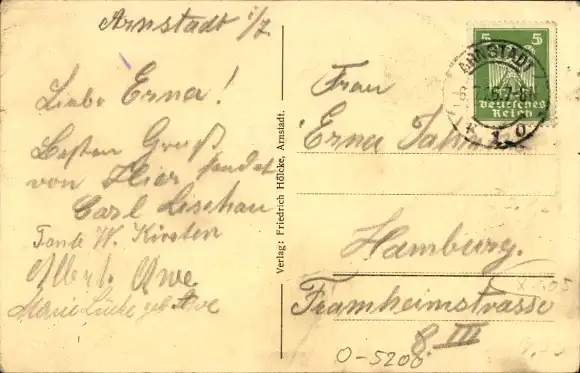 Arnstadt 1/7
Liebe Erna!
Besten Gruß
von Hier sendet
Carl Leschau
Tante W. Kirsten
Albert Awe
Marie Lücke geb. Awe
Verlag: Friedrich Hölcke, Arnstadt.
5 5
Deutsches
Reich
ARNSTADT
Frau
Erna
Hamburg.
Framheimstrasse
8. III
O-5200